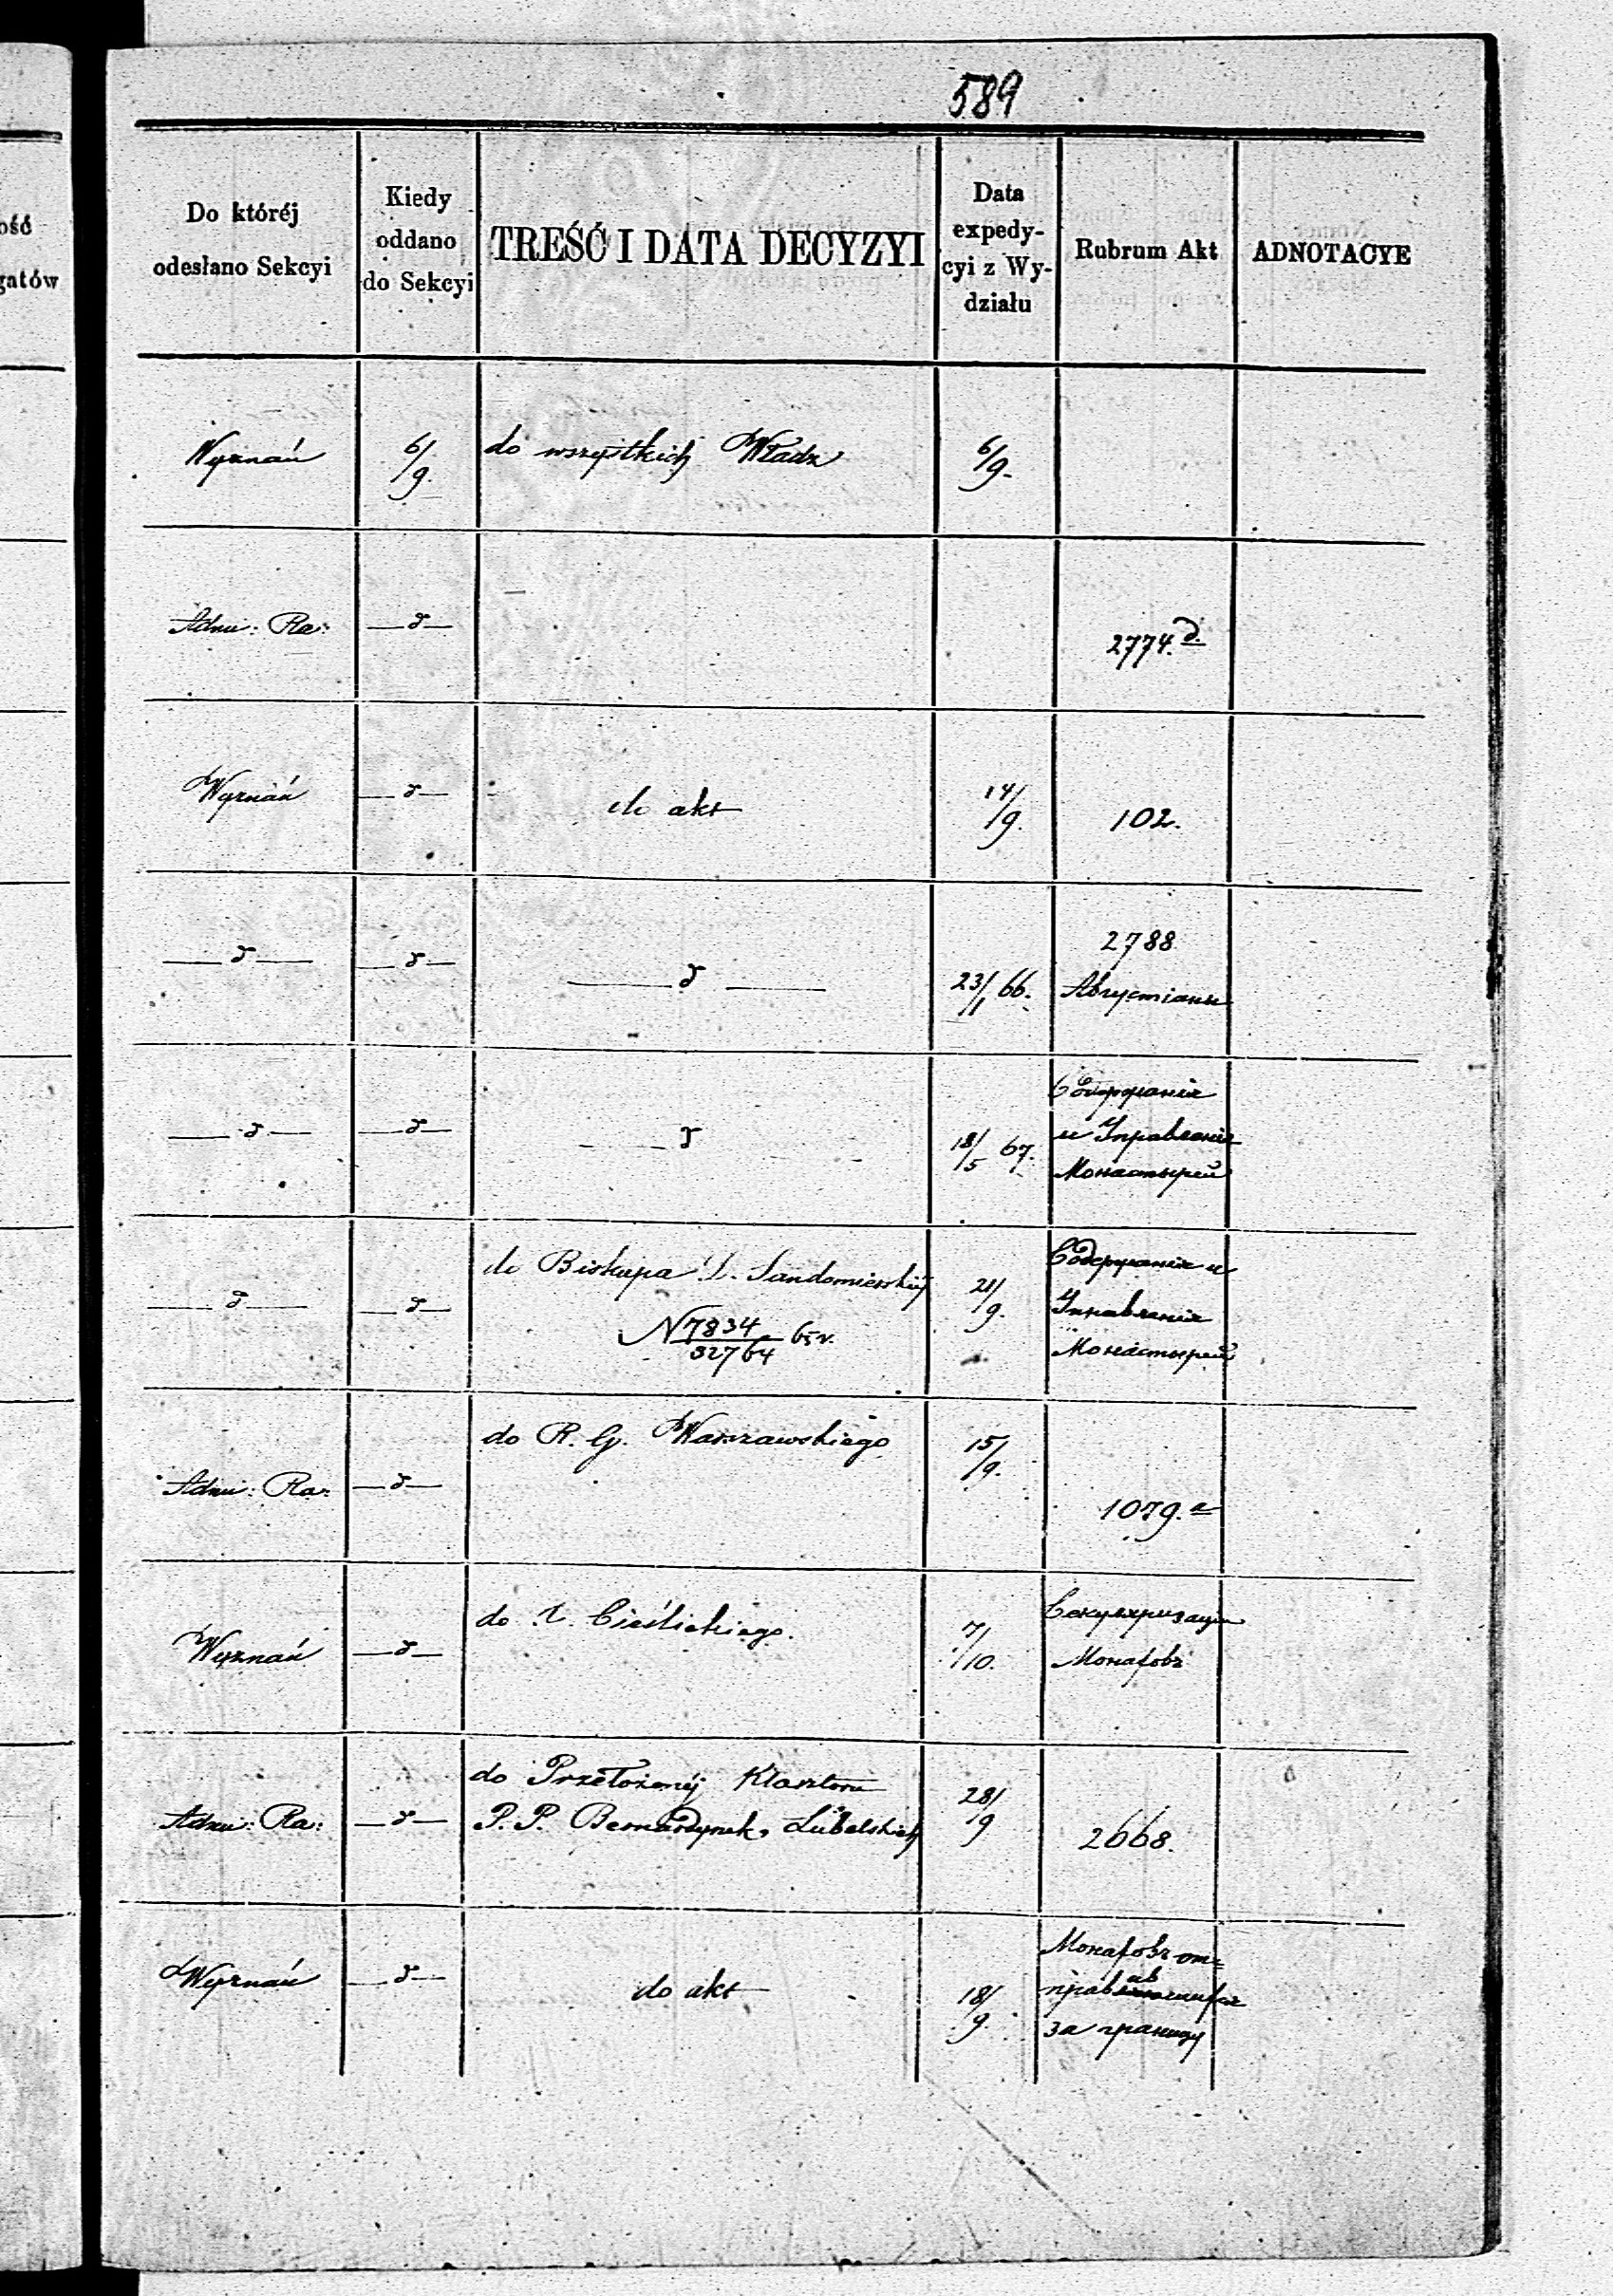 589
ość
gatów
Do któréj
odesłano Sekcyi
Kiedy
oddano
do Sekcyi
TREŚĆ I DATA DECYZYI
Data
expedy-
cyi z Wy-
działu
Rubrum Akt
ADNOTACYE
Wyznań
6/9.
do wszystkich Władz
6/9.
Adm: Ra:
—d—
2774. d.
Wyznań
—d—
do akt
14/9.
102.
—d—
—d—
—d—
23/1 66.
2788
Августіане
—d—
—d—
—d
18/5 67.
Содержаніе
и Управленіе
Монастырей
—d—
—d—
do Biskupa D. Sandomierskiej
N 7834/32764 65 r.
21/9.
Содержаніе и
Управленіе
Монастырей
Adm: Ra:
—d—
do R. G. Warszawskiego
15/9.
1079. a
Wyznań
—d—
do X. Cieślickiego.
7/10.
Секуляризація
Монаховъ
Adm: Ra:
—d—
do Przełożonéj Klasztoru
P. P. Bernardynek, Lubelskich
28/9
2668.
Wyznań
—d—
do akt
18/9.
Монаховъ от=
за границу